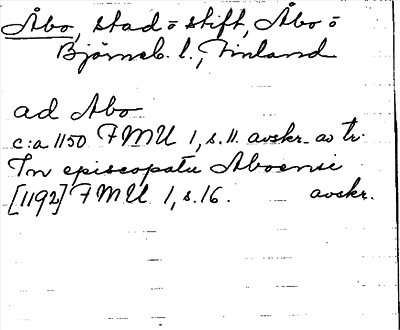 Åbo, stad o stift, Åbo o
Björneb. l., Finland
ad Abo
c:a 1150 FMU 1, s. 11. avskr. av tr.
In episcopatu Aboensi
[1192] FMU 1, s. 16. avskr.